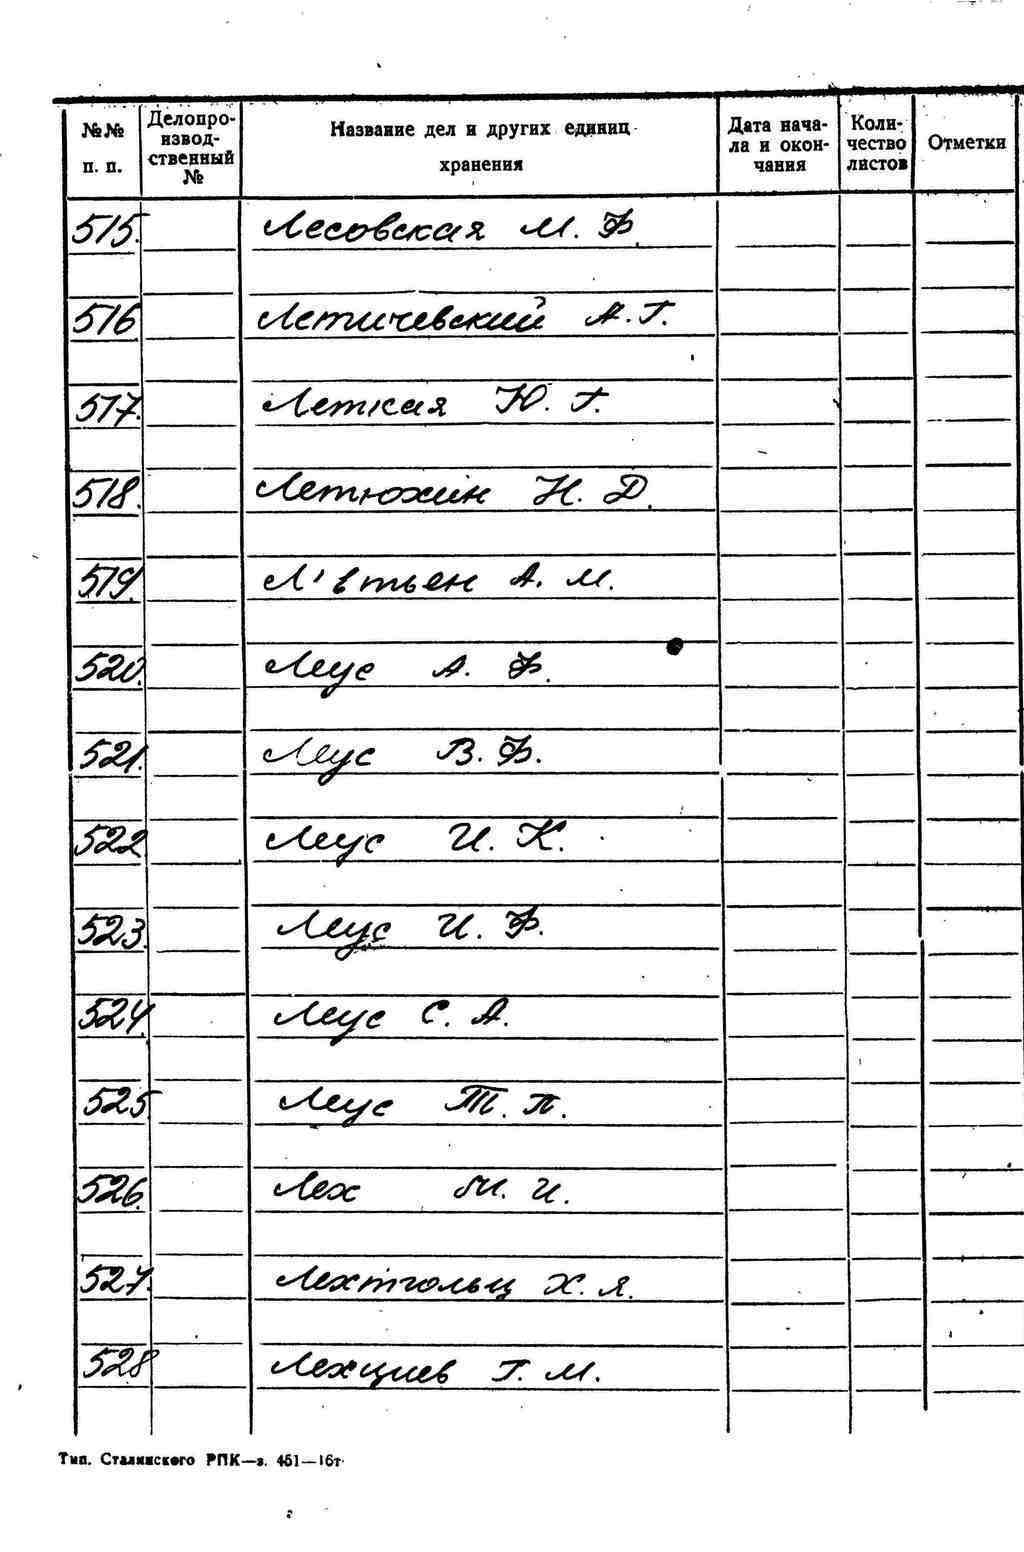 №№ п. п. Делопроизводственный № Название дел и других единиц хранения Дата начала и окончания Количество листов Отметки
515. Лесовская М. Ф.
516 Летичевский А. Г.
517. Леткая Ю. Г.
518. Летюхин Н. Д.
519. Л'втьен А. М.
520. Леус А. Ф.
521. Леус В. Ф.
522 Леус И. К.
523. Леус И. Ф.
524. Леус С. А.
525 Леус Т. П.
526. Лех М. И.
527. Лехтгольц Х. Я.
528 Лехциев Г. М.
Тип. Сталинского РПК—з. 451—16т